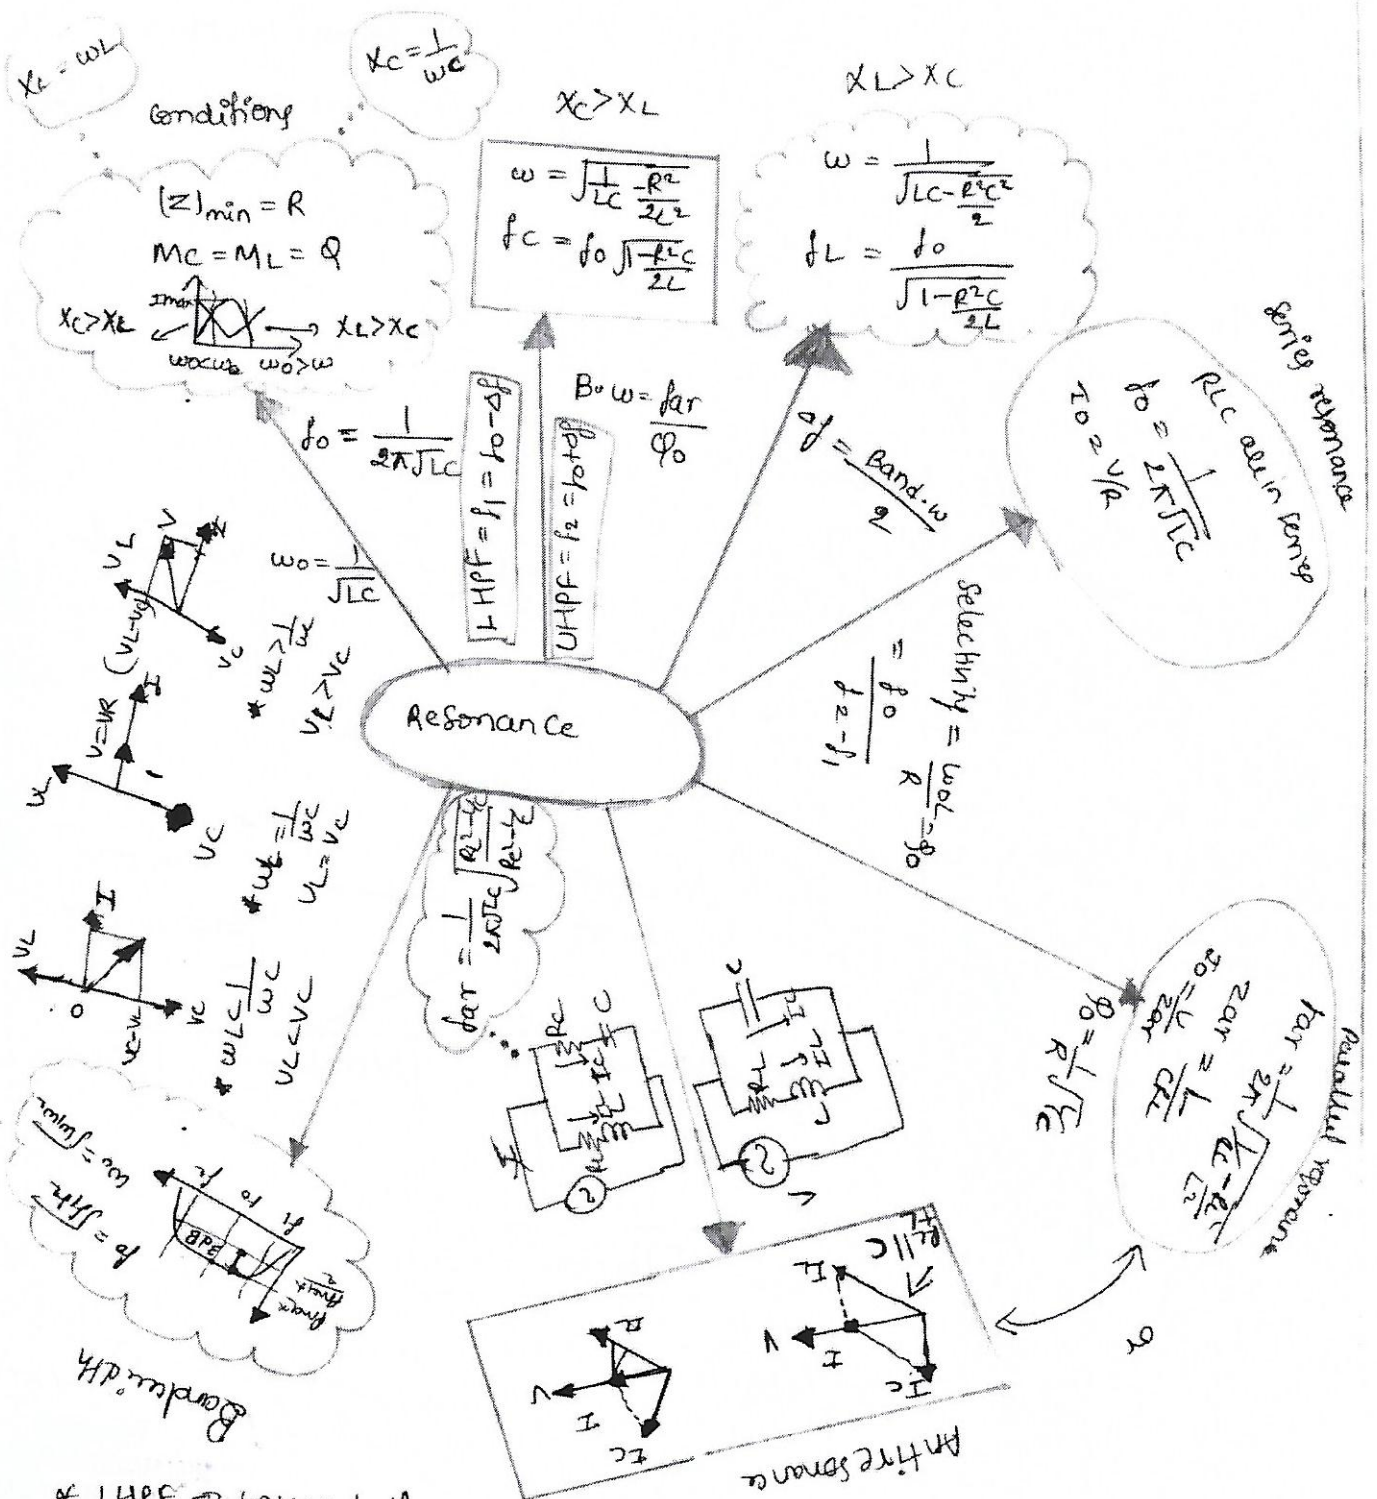 XL = ωL
XC = 1/ωC
conditions
|Z|min = R
MC = ML = Q
Imax
XC > XL
XL > XC
ω0>ω
XC > XL
ω = √(1/LC - R²/2L²)
fC = f0 √(1-R²C/2L)
XL > XC
ω = 1/√(LC - R²C²/2)
fL = f0/√(1-R²C/2L)
series resonance
RLC all in series
f0 = 1/2π√LC
I0 = V/R
f0 = 1/2π√LC
ω0 = 1/√LC
LHPF = f1 = f0 - Δf
UHPF = f2 = f0 + Δf
B.ω = far/Q0
Δf = Band.ω/2
Selectivity = ω0L/R = Q0
= f0/f2-f1
Resonance
VL
V
I
(VL-VC)
VC
* ωL > 1/ωC
VL > VC
V=VR
I
VL
VC
* ωL = 1/ωC
VL = VC
VL
I
O
VC
VC-VL
* ωL < 1/ωC
VL < VC
far = 1/2π√LC √(RL²-L/C)/√(RC²-L/C)
RC
C
IC
RL
IL
L
I
C
RL
IL
L
V
Parallel resonance
far = 1/2π √(1/LC - RL²/L²)
Zar = L/CRL
I0 = V/Zar
Q0 = 1/R √L/C
or
Antiresonance
RL+L || C
IL
V
I
IC
V
I
IC
Bandwidth
Pmax
Pmax/2
3dB
f1
f0
f2
f0 = √f1f2
ω0 = √ω1ω2